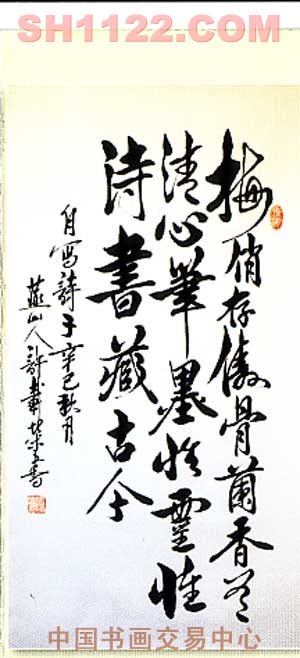 SH1122.COM
梅俏存傲骨蘭香
清心筆墨怡靈性
詩書藏古今
自寫詩于辛巳秋月
燕山人許書
中国书画交易中心